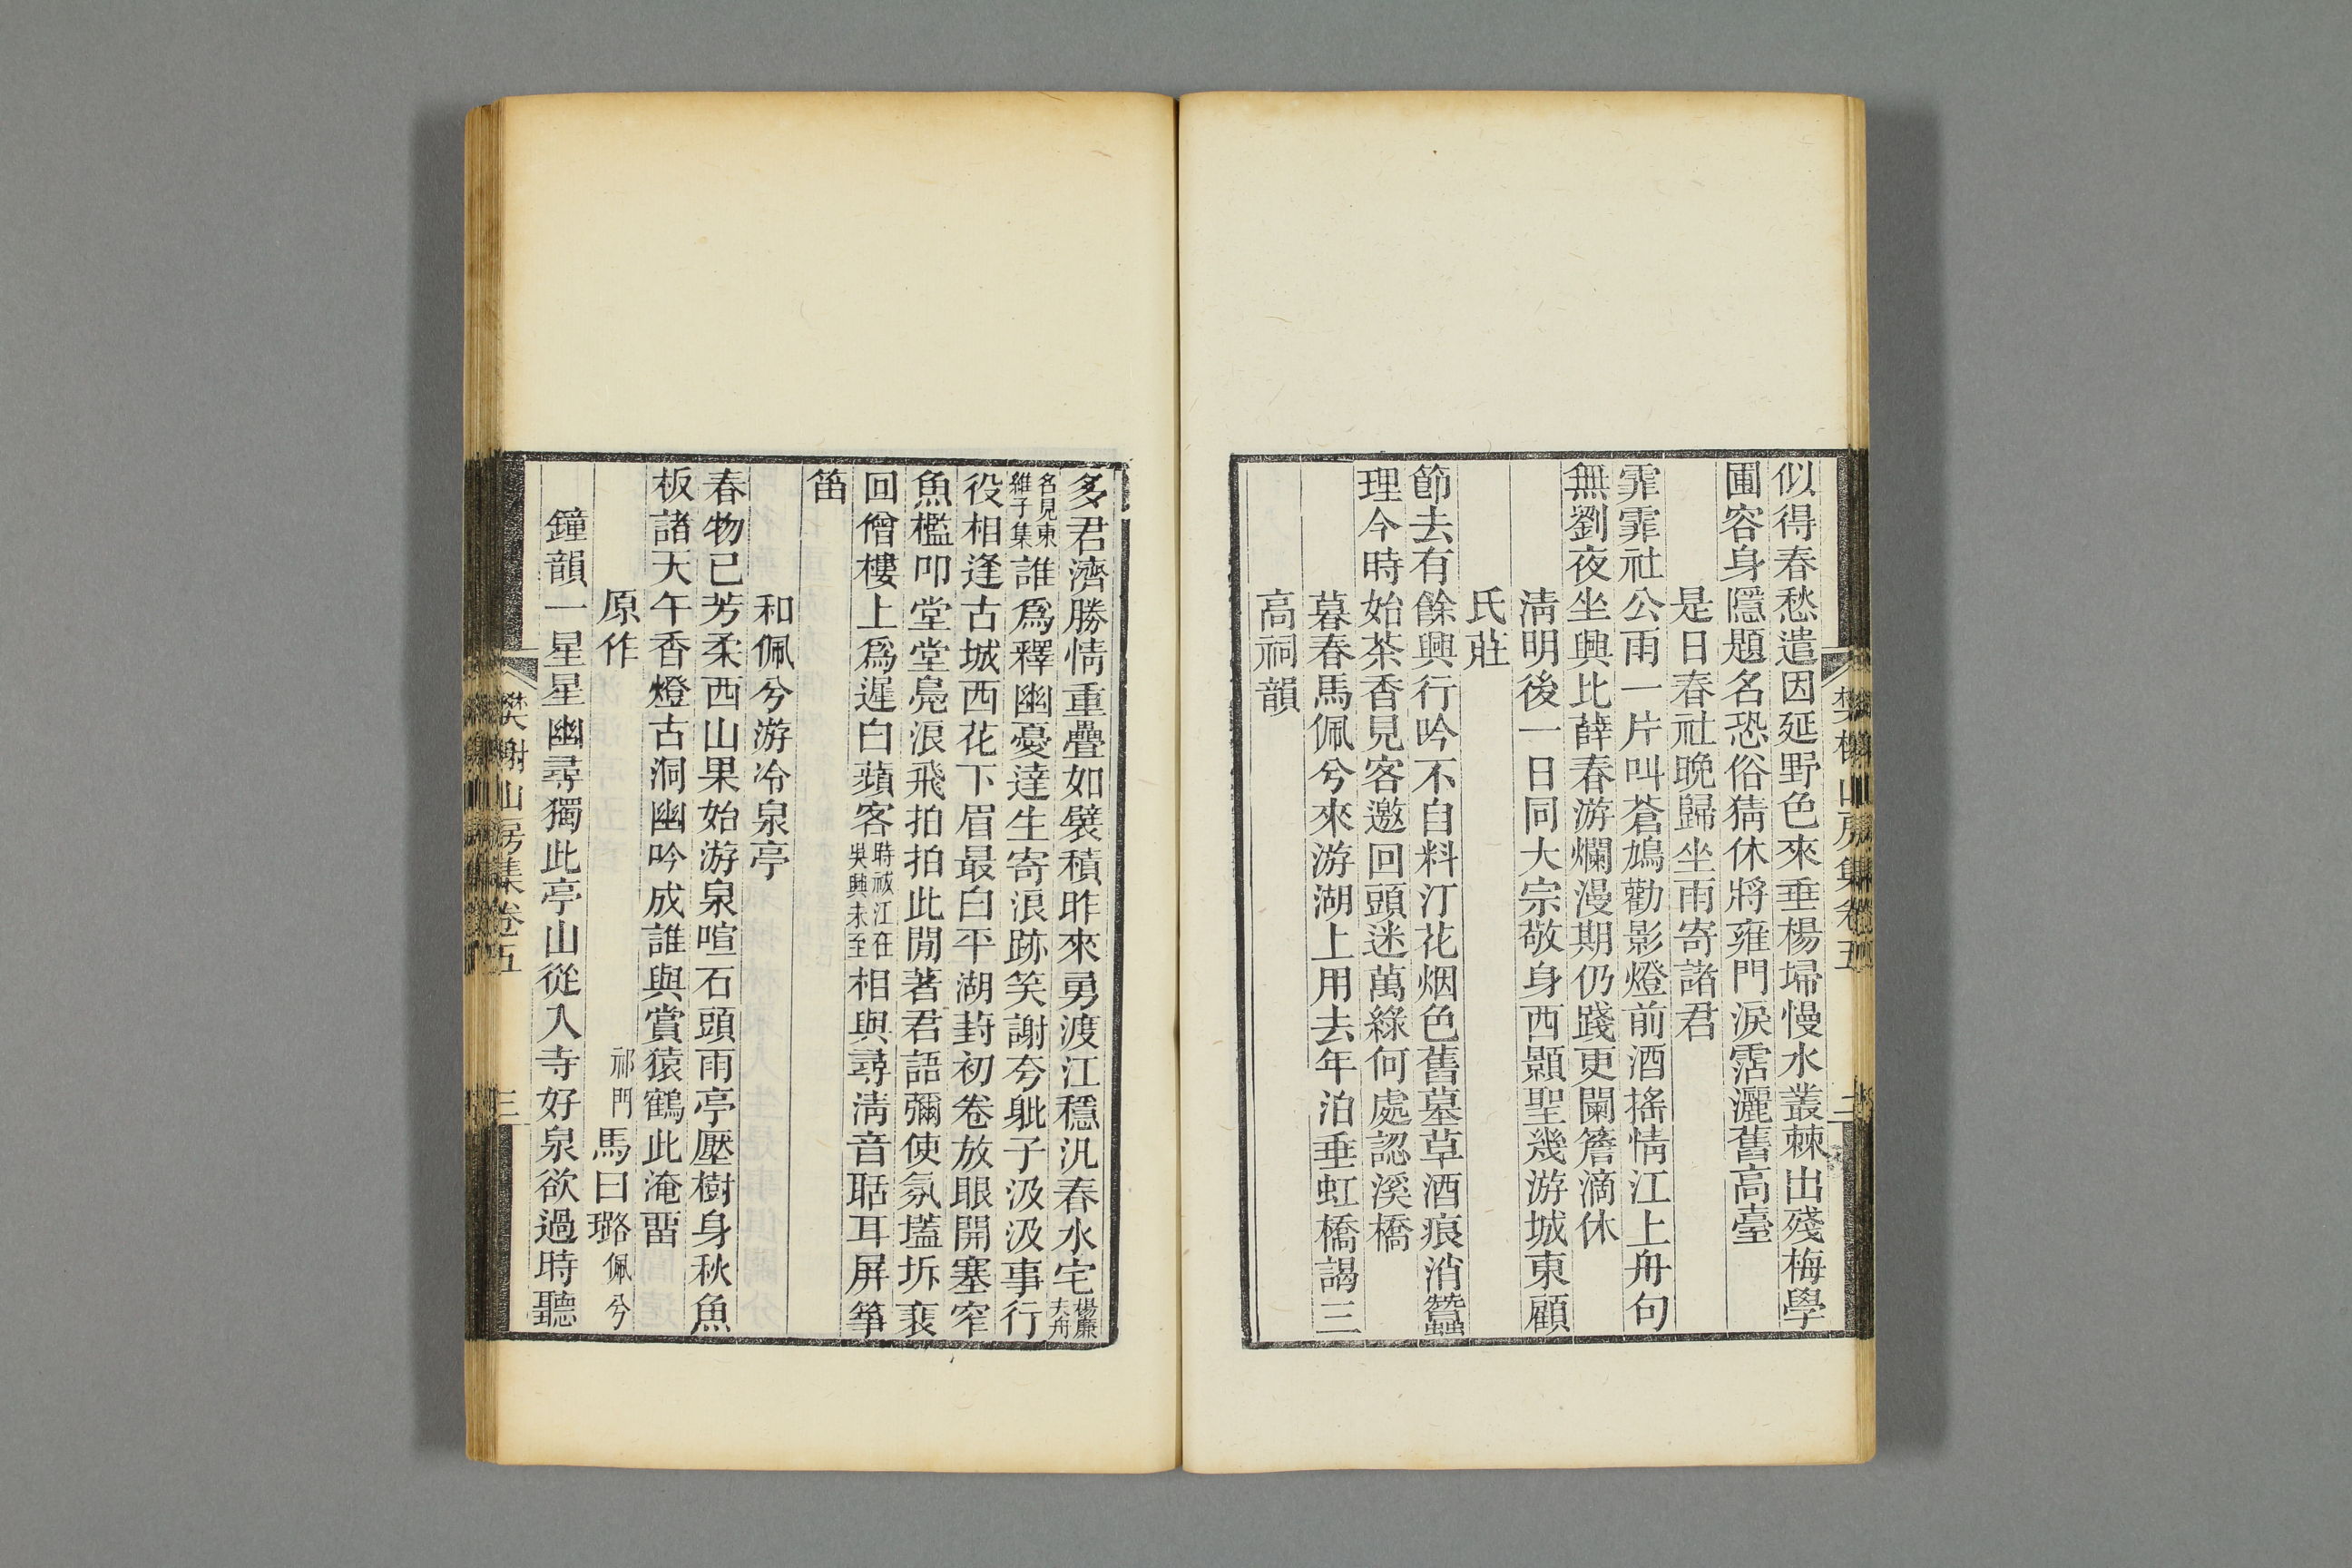 似得春愁遣因延野色來垂楊埽慢水叢棘出殘梅學
圃容身隱題名恐俗猜休將雍門淚霑灑舊高臺
是日春社晚歸坐雨寄諸君
霏霏社公雨一片叫蒼鳩勸影燈前酒搖情江上舟句
無劉夜坐興比薛春游爛漫期仍踐更闌簷滴休
淸明後一日同大宗敬身西顥聖幾游城東顧
氏莊
節去有餘興行吟不自料汀花烟色舊墓草酒痕消蠶
理今時始茶香見客邀回頭迷萬綠何處認溪橋
暮春馬佩兮來游湖上用去年泊垂虹橋謁三
高祠韻
樊榭山房集卷五
二
多君濟勝情重疊如襞積昨來勇渡江穩汎春水宅楊廉夫舟
名見東維子集誰爲釋幽憂達生寄浪跡笑謝夸毗子汲汲事行
役相逢古城西花下眉最白平湖葑初卷放眼開塞窄
魚檻叩堂堂鳧浪飛拍拍此閒著君語彌使氛壒坼裵
回僧樓上爲遲白蘋客時祓江在吳興未至相與尋淸音聒耳屏箏
笛
和佩兮游冷泉亭
春物已芳柔西山果始游泉喧石頭雨亭壓樹身秋魚
板諸天午香燈古洞幽吟成誰與賞猿鶴此淹畱
原作
祁門馬曰璐佩兮
鐘韻一星星幽尋獨此亭山從入寺好泉欲過時聽
樊榭山房集卷五
三